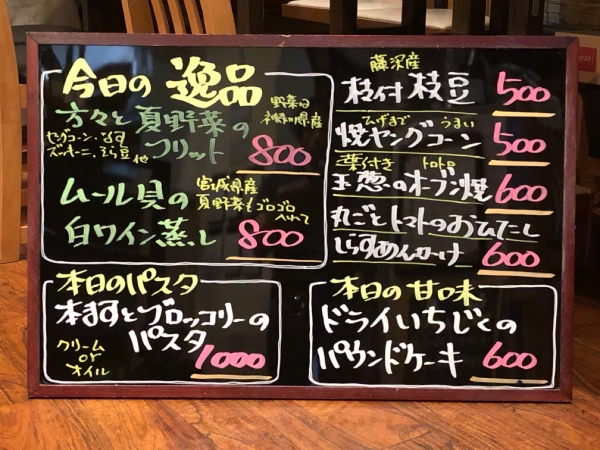 今日の 逸品
方々と 夏野菜の
フリット 800
野菜は
神奈川県産
ヤングコーン・なす
ズッキーニ、そら豆 他
ムール貝の
白ワイン蒸し 800
宮城県産
夏野菜もゴロゴロ
入れて
藤沢産
枝付 枝豆 500
ひげまで うまい
焼ヤングコーン 500
葉付き
玉葱のオーブン焼 600
丸ごとトマトのおひたし
しらすあんかけ 600
本日のパスタ
本ますとブロッコリーの
パスタ 1000
クリーム
or
オイル
本日の甘味
ドライいちじくの
パウンドケーキ 600